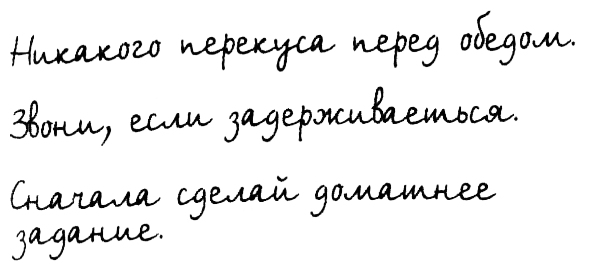 Никакого перекуса перед обедом.
Звони, если задерживаешься.
Сначала сделай домашнее
задание.